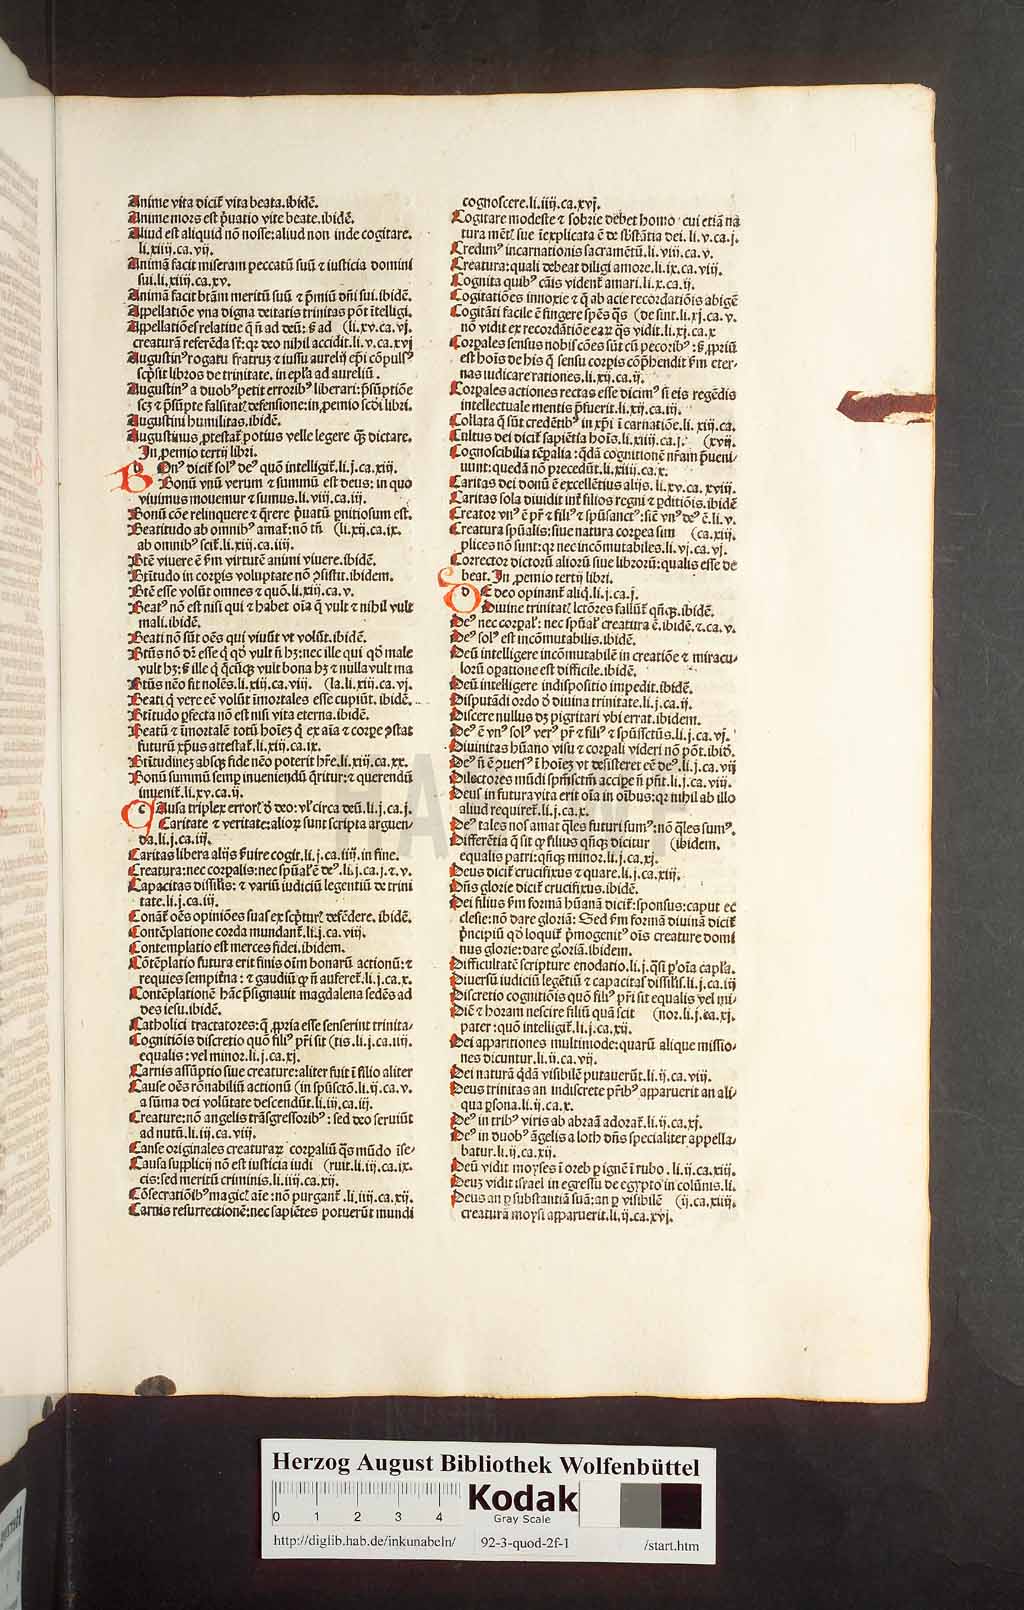 Anime vita dicit᷑ vita beata.ibidē.
Anime mors est p̄uatio vite beate.ibidē.
Aliud est aliquid nō nosse:aliud non inde cogitare.
li.xiiij.ca.vij.
Animā facit miseram peccatū suū ⁊ iusticia domini
sui.li.xiiij.ca.xv.
Animā facit btām meritū suū ⁊ p̄miū dn̄i sui.ibidē.
Appellatiōe vna digna deitatis trinitas pōt ītelligi.
Appellatiōes relatiue q̄ n̄ ad deū: s̄ ad (li.xv.ca.vj.
creaturā referēda st̄:qꝛ deo nihil accidit.li.v.ca.xvj
Augustinꝰ rogatu fratruꝫ ⁊ iussu aurelij ep̄i cōpulsꝰ
scp̄sit libros de trinitate, in epl̄a ad aureliū.
Augustinꝰ a duobꝰ petit erroribꝰ liberari: p̄sūptiōe
scꝫ ⁊ p̄sūpte falsitatꝭ defensione:in ꝓemio scd̄i libri.
Augustini humilitas.ibidē.
Augustinus ꝓtestat᷑ potius velle legere qꝫ̄ dictare.
In ꝓemio tertij libri.
B Onꝰ dicit᷑ solꝰ deꝰ quō intelligit᷑.li.j.ca.xiij.
Bonū vnū verum ⁊ summū est deus: in quo
viuimus mouemur ⁊ sumus.li.viij.ca.iij.
Bonū cōe relinquere ⁊ q̄rere p̄uatū ꝑnitiosum est.
Beatitudo ab omnibꝰ amat᷑:nō tn̄ (li.xij.ca.ix.
ab omnibꝰ scit᷑.li.xiij.ca.iiij.
Btē viuere ē s̄m virtutē animi viuere.ibidē.
Btītudo in corꝑis voluptate nō ꝯsistit.ibidem.
Btē esse volūt omnes ⁊ quō.li.xiij.ca.v.
Beatꝰ nō est nisi qui ⁊ habet oīa q̄ vult ⁊ nihil vult
mali.ibidē.
Beati nō sūt oēs qui viuūt vt volūt.ibidē.
Btūs nō dꝫ esse q̄ qd̄ vult n̄ hꝫ:nec ille qui qd̄ male
vult hꝫ: s̄ ille q̄ q̄cūqꝫ vult bona hꝫ ⁊ nulla vult ma
Btūs nēo fit nolēs.li.xiij.ca.viij. (la.li.xiij.ca.vj.
Beati q̄ vere eē volūt īmortales esse cupiūt. ibidē.
Btītudo ꝑfecta nō est nisi vita eterna.ibidē.
Beatū ⁊ īmortalē totū hoīeꝫ q̄ ex aīa ⁊ corꝑe ꝯstat
futurū xp̄us attestat᷑.li.xiij.ca.ix.
Btītudineꝫ absqꝫ fide nēo poterit hr̄e.li.xiij.ca.xx.
Bonū summū semꝑ inueniendū q̄ritur:⁊ querendū
inuenit᷑.li.xv.ca.ij.
C Ausa triplex errorꝭ d̄ deo: vꝉ circa deū.li.j.ca.j.
Caritate ⁊ veritate:alioꝝ sunt scripta arguen-
da.li.j.ca.iij.
Caritas libera alijs s̄uire cogit.li.j.ca.iiij.in fine.
Creatura:nec corꝑalis:nec spūal' ē deꝰ.li.j.ca.j.⁊.v.
Capacitas dissil'is: ⁊ variū iudiciū legentiū de trini
tate.li.j.ca.iij.
Conāt᷑ oēs opiniōes suas ex scp̄turꝭ defēdere. ibidē.
Contēplatione corda mundant᷑.li.j.ca.viij.
Contemplatio est merces fidei.ibidem.
Cōtēplatio futura erit finis oīm bonarū actionū: ⁊
requies sempit̄na: ⁊ gaudiū qꝙ n̄ auferet᷑.li.j.ca.x.
Contēplationē hāc p̄signauit magdalena sedēs ad
des iesu.ibidē.
Catholici tractatores:q̄ ꝓpria esse senserint trinita-
Cognitiōis discretio quō filiꝰ pr̄i sit (tis.li.j.ca.iiij.
equalis: vel minor.li.j.ca.xj.
Carnis assūptio siue creature:aliter fuit ī filio aliter
Cause oēs rōnabiliū actionū (in spūsctō.li.ij.ca.v.
a sūma dei volūtate descendūt.li.iij.ca.iij.
Creature:nō angelis trāsgressoribꝰ: sed deo seruiūt
ad nutū.li.iij.ca.viij.
Cause originales creaturaꝝ corꝑaliū q̄s mūdo īse-
Causa supplicij nō est iusticia iudi (ruit.li.iij.ca.ix.
cis:sed meritū criminis.li.iiij.ca.xij.
Cōsecratiōibꝰ magicꝭ aīe:nō purgant᷑.li.iiij.ca.xij.
Carnis resurrectionē:nec sapiētes potuerūt mundi
cognoscere.li.iiij.ca.xvj.
Cogitare modeste ⁊ sobrie debet homo cui etiā na
tura mētꝭ sue īexplicata ē de sb̄stātia dei.li.v.ca.j.
Credimꝰ incarnationis sacramētū.li.viij.ca.v.
Creatura:quali debeat diligi amore.li.ix.ca.viij.
Cognita quibꝰ cāis vident᷑ amari.li.x.ca.ij.
Cogitatiōes innoxie ⁊ q̄ ab acie recordatiōis abigē
Cogitāti facile ē fingere sp̄es q̄s (de sint.li.xj.ca.v.
nō vidit ex recordatiōe eaꝝ q̄s vidit.li.xj.ca.x
Corꝑales sensus nobis cōes sūt cū pecoribꝰ: s̄ ꝓpriū
est hoīs de his q̄ sensu corꝑis cōp̄hendit s̄m eter-
nas iudicare rationes.li.xij.ca.ij.
Corꝑales actiones rectas esse dicimꝰ si eis regēdis
intellectuale mentis p̄fuerit.li.xij.ca.iij.
Collata q̄ sūt credētibꝰ in xp̄i īcarnatiōe.li.xiij.ca.
Cultus dei dicit᷑ sapiētia hoīs.li.xiiij.ca.j. (xvij.
Cognoscibilia tēꝑalia: q̄dā cognitionē nr̄am p̄ueni-
unt: quedā nō precedūt.li.xiiij.ca.x.
Caritas dei donū ē excellētius alijs.li.xv.ca.xviij.
Caritas sola diuidit int̄ filios regni ⁊ ꝑditiōis.ibidē
Creator vnꝰ ē pr̄ ⁊ filiꝰ ⁊ spūsanctꝰ:sic̄ vnꝰ deꝰ ē.li.v.
Creatura spūalis:siue natura corꝑea sim (ca.xiij.
plices nō sunt:qꝛ nec incōmutabiles.li.vj.ca.vj.
Corrector dictorū aliorū siue librorū:qualis esse de
beat. In ꝓemio tertij libri.
D E deo opinant᷑ aliq̄.li.j.ca.j.
Diuine trinitatꝭ lctōres fallūt᷑ qn̄qꝫ.ibidē.
Deꝰ nec corꝑal': nec spūal' creatura ē.ibidē.⁊.ca.v.
Deꝰ solꝰ est incōmutabilis.ibidē.
Deū intelligere incōmutabilē in creatiōe ⁊ miracu-
lorū oꝑatione est difficile.ibidē.
Deū intelligere indispositio impedit.ibidē.
Disputādi ordo d̄ diuina trinitate.li.j.ca.ij.
Discere nullus dꝫ pigritari vbi errat.ibidem.
Deꝰ ē vnꝰ solꝰ verꝰ pr̄ ⁊ filiꝰ ⁊ spūssctūs.li.j.ca.vj.
Diuinitas hūano visu ⁊ corꝑali videri nō pōt.ibid.
Deꝰ n̄ ē ꝯuersꝰ ī hoīeꝫ vt desisteret eē deꝰ.li.j.ca.vij
Dilectores mūdi spm̄sctm̄ accipe n̄ pn̄t.li.j.ca.viij.
Deus in futura vita erit oīa in oībus:qꝛ nihil ab illo
aliud requiret᷑.li.j.ca.x.
Deꝰ tales nos amat q̄les futuri sumꝰ:nō q̄les sumꝰ.
Differētia q̄ sit qꝙ filius qn̄qꝫ dicitur (ibidem.
equalis patri:qn̄qꝫ minor.li.j.ca.xj.
Deus dicit᷑ crucifixus ⁊ quare.li.j.ca.xiij.
Dn̄s glorie dicit᷑ crucifixus.ibidē.
Dei filius s̄m formā hūanā dicit᷑:sponsus:caput ec
clesie:nō dare gloriā: Sed s̄m formā diuinā dicit᷑
p̄ncipiū qd̄ loquit᷑ p̄mogenitꝰ oīs creature domi
nus glorie:dare gloriā.ibidem.
Difficultatē scripture enodatio.li.j.q̄si ꝑ oīa capl̄a.
Diuersū iudiciū legētiū ⁊ capacitas dissil'is.li.j.ca.iij
Discretio cognitiōis quō filiꝰ pr̄i sit equalis vel mi-
Diē ⁊ horam nescire filiū quā scit (nor.li.j.ca.xj.
pater:quō intelligit᷑.li.j.ca.xij.
Dei apparitiones multimode:quarū alique missio-
nes dicuntur.li.ij.ca.vij.
Dei naturā q̄dā visibilē putauerūt.li.ij.ca.viij.
Deus trinitas an indiscrete pr̄ibꝰ apparuerit an ali-
qua ꝑsona.li.ij.ca.x.
Deꝰ in tribꝰ viris ab abraā adorat᷑.li.ij.ca.xj.
Deꝰ in duobꝰ āgelis a loth dn̄s specialiter appella-
batur.li.ij.ca.xij.
Deū vidit moyses ī oreb ꝑ ignē ī rubo.li.ij.ca.xiij.
Deuꝫ vidit israel in egressu de egypto in colūnis.li.
Deus an ꝑ substantiā suā:an ꝑ visibilē (ij.ca.xiiij.
creaturā moysi apparuerit.li.ij.ca.xvj.
HAB WF
Herzog August Bibliothek Wolfenbüttel
0 1 2 3 4
Kodak
Gray Scale
http://diglib.hab.de/inkunabeln/ 92-3-quod-2f-1 /start.htm